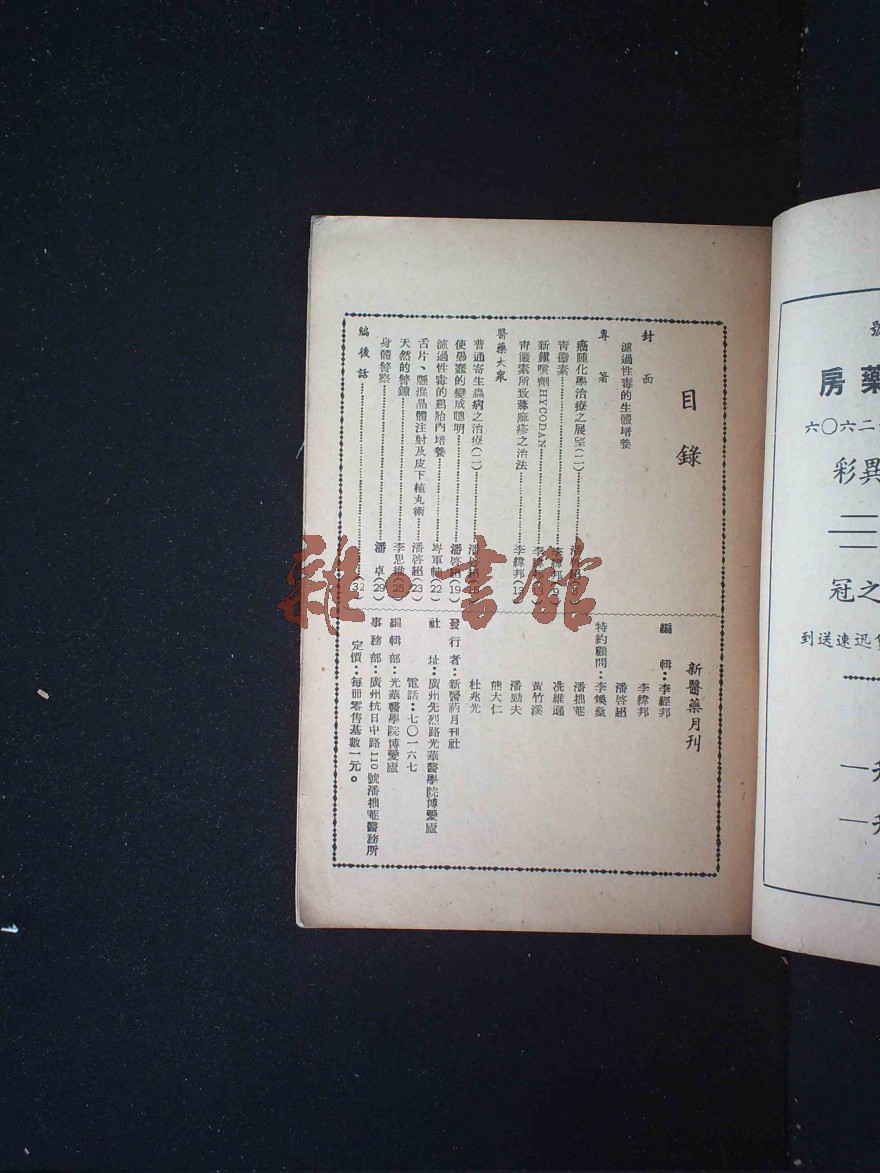 目錄
封面
濾過性毒的生體培養
專著
癌腫化學治療之展望(二)
青黴素
新鎮咳劑HYCODAN 李緯邦
青黴素所致蕁麻疹之治法 李緯邦
醫藥大衆
普通寄生蟲病之治療(二)
使愚蠢的變成聰明 潘啓超(19)
濾過性毒的鷄胎內培養 岑軍輔(22)
舌片、懸混晶體注射及皮下植丸術 潘啓超(23)
天然的警鐘 李思維(25)
身體警察 潘卓(29)
編後話 (32)
新醫藥月刊
編輯：李經邦
李緯邦
潘啓超
特約顧問：李煥燊
潘拙菴
冼維遜
黃竹溪
潘勁夫
熊大仁
杜兆光
發行者：新醫葯月刊社
社址：廣州先烈路光華醫學院博愛廬
電話：七〇一六七
編輯部：光華醫學院博愛廬
事務部：廣州抗日中路110號潘拙菴醫務所
定價：每冊零售基數一元。
號
藥房
二六〇六
異彩
之冠
迅速送到
雜·書館